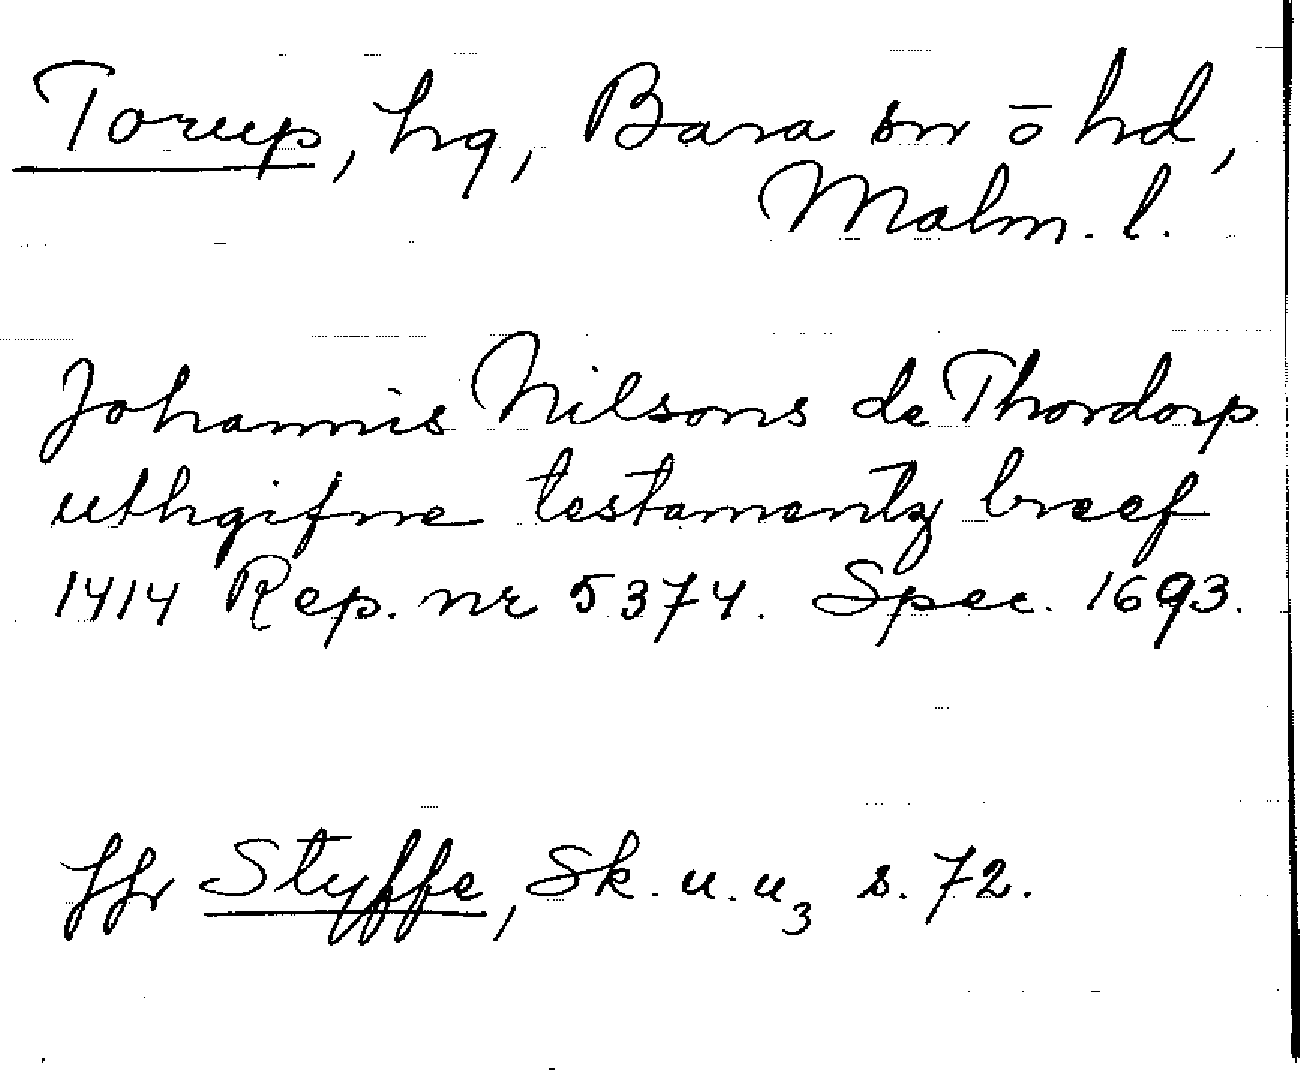 Torup, hg, Bara sn o hd,
Malm. l.
Johannis Nilsons de Thordorp
uthgifne testamentz breef
1414 Rep. nr 5374. Spec. 1693.
Jfr Styffe, Sk. u. u₃ s. 72.